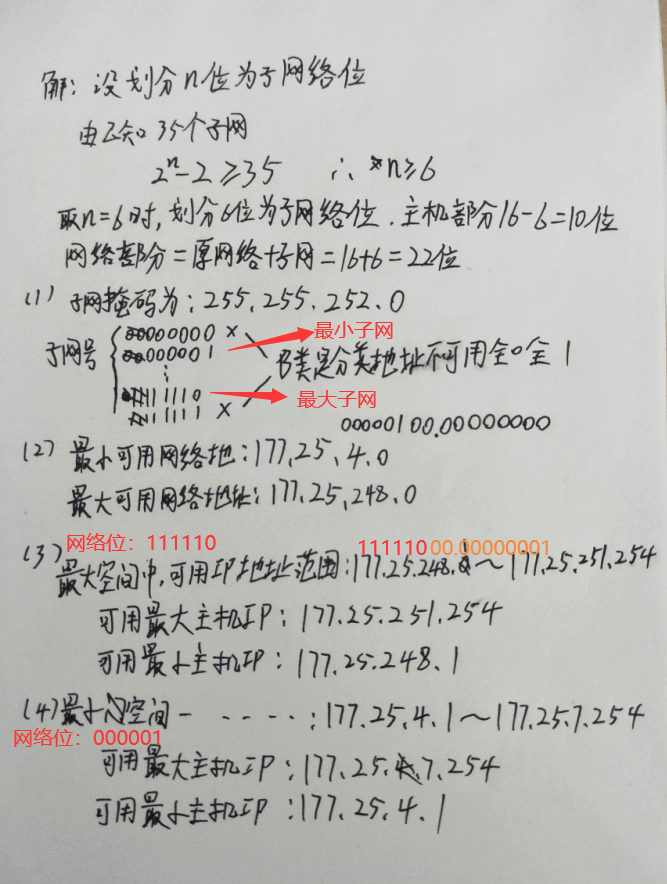 解: 设划分n位为子网络位
由已知 35个子网
2ⁿ-2≥35 ∴ n≥6
取n=6时, 划分6位为子网络位. 主机部分16-6=10位
网络部分=原网络+子网=16+6=22位
(1) 子网掩码为: 255.255.252.0
子网号
000000 ×
最小子网
000001
B类是分类地址不可用全0全1
⋮
111110
最大子网
111111 ×
00000100.00000000
(2) 最小可用网络地: 177.25.4.0
最大可用网络地址: 177.25.248.0
网络位: 111110
11111000.00000001
(3) 最大空间中, 可用IP地址范围: 177.25.248.1~177.25.251.254
可用最大主机IP: 177.25.251.254
可用最小主机IP: 177.25.248.1
(4) 最小空间-·····: 177.25.4.1~177.25.7.254
网络位: 000001
可用最大主机IP: 177.25.7.254
可用最小主机IP: 177.25.4.1